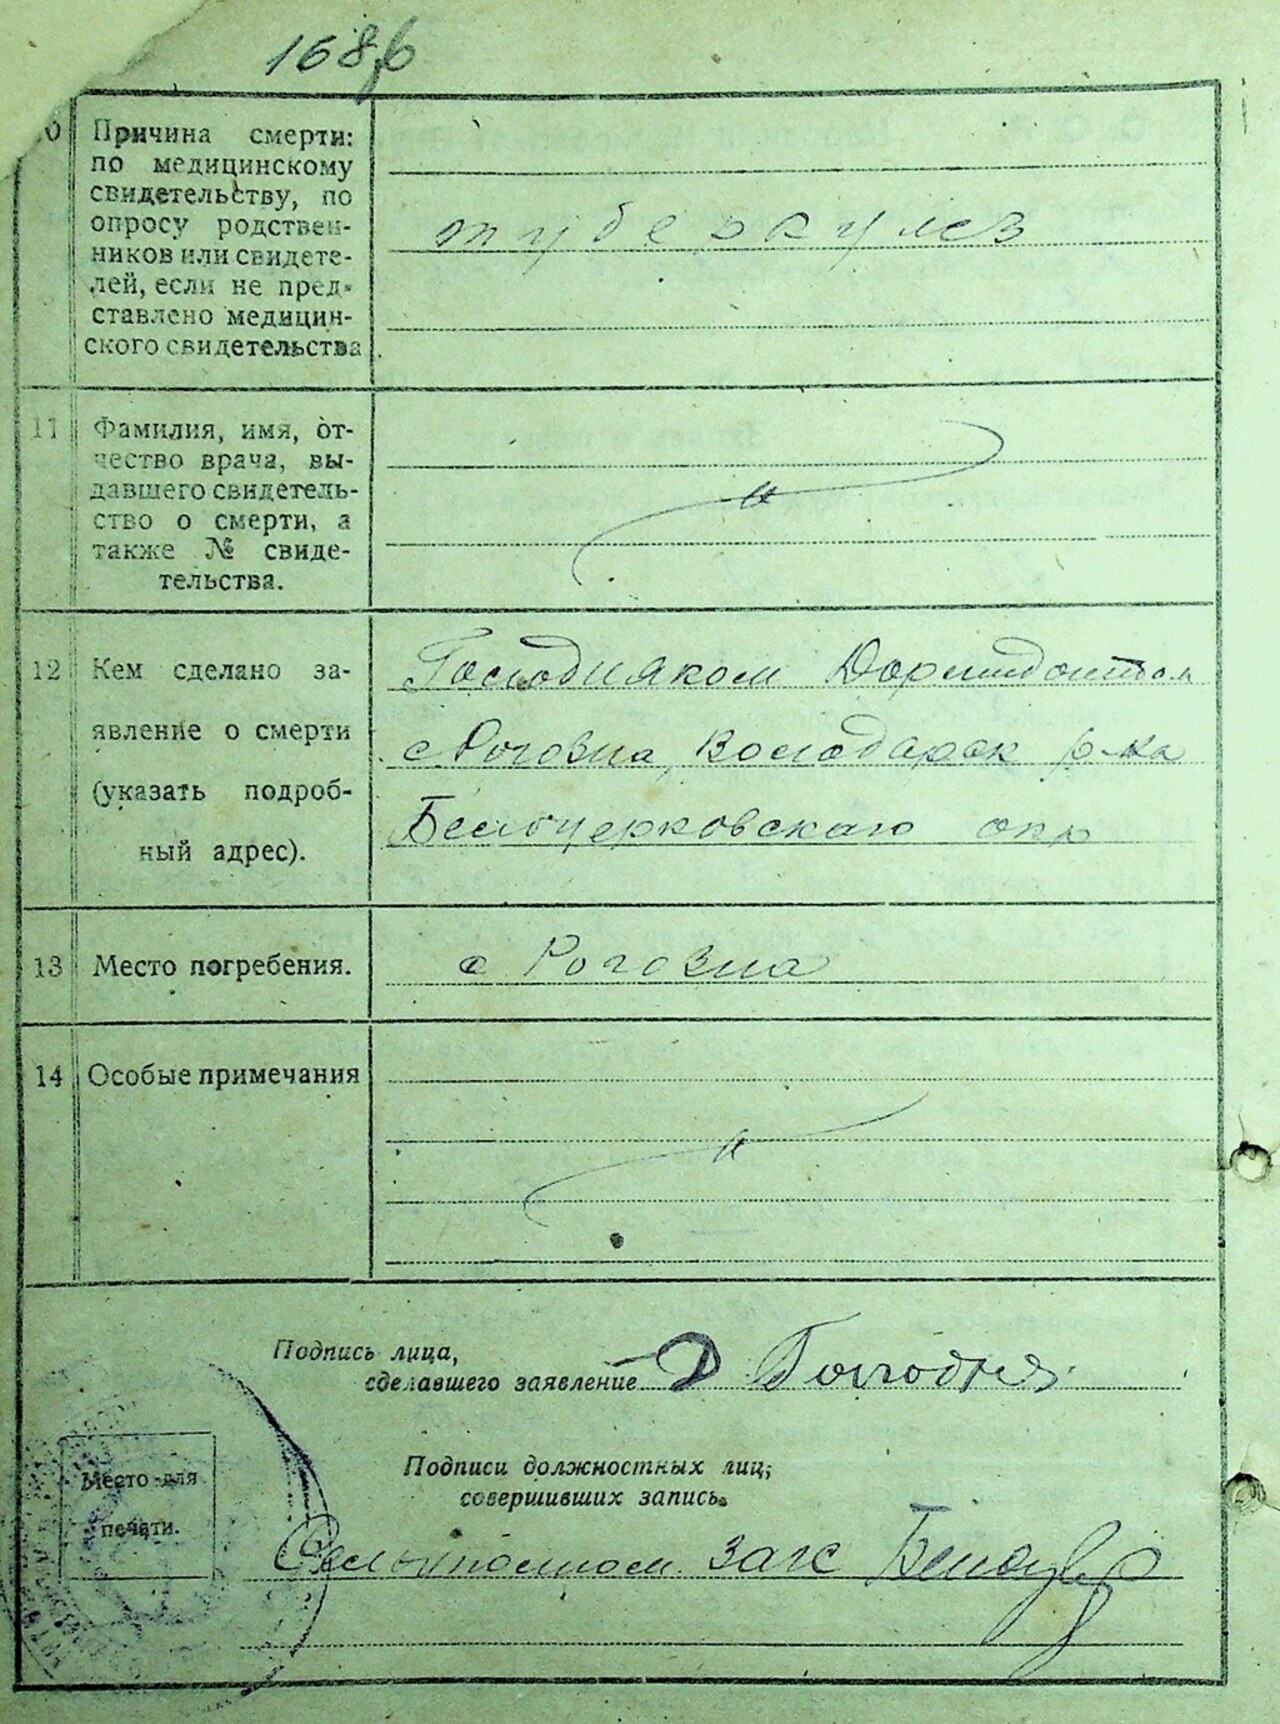 168
Причина смерти:
по медицинскому
свидетельству, по
опросу родствен-
ников или свидете-
лей, если не пред-
ставлено медицин-
ского свидетельства
туберкулез
11
Фамилия, имя, от-
чество врача, вы-
давшего свидетель-
ство о смерти, а
также № свиде-
тельства.
"
12
Кем сделано за-
явление о смерти
(указать подроб-
ный адрес).
с Рогозна, Володарск р-на
Белоцерковскаго окр
13
Место погребения.
с Рогозна
14
Особые примечания
"
Подпись лица,
сделавшего заявление
Подписи должностных лиц,
совершивших запись.
Место для
печати.
загс